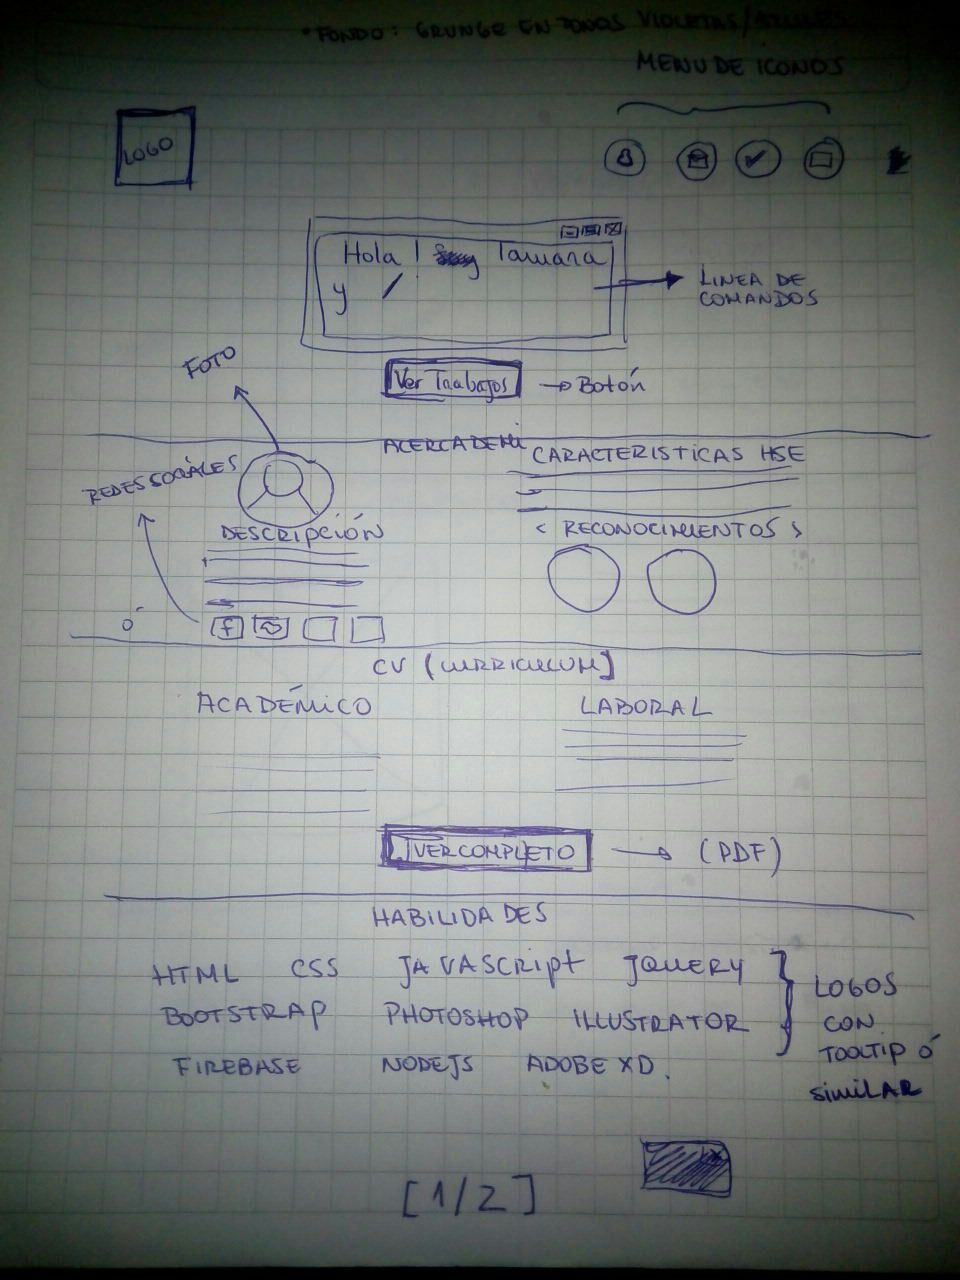 • FONDO: GRUNGE EN TONOS VIOLETAS/AZULES
MENU DE ICONOS
LOGO
Hola ! Tamara
y /
LINEA DE
COMANDOS
Ver Trabajos → Botón
FOTO
ACERCA DE MI
REDES SOCIALES
DESCRIPCIÓN
f
CARACTERISTICAS HSE
< RECONOCIMIENTOS >
ó
CV (CURRICULUM)
ACADÉMICO
LABORAL
VER COMPLETO → (PDF)
HABILIDADES
HTML CSS JAVASCRIPT JQUERY
BOOTSTRAP PHOTOSHOP ILLUSTRATOR
FIREBASE NODEJS ADOBE XD.
LOGOS
CON
TOOLTIP Ó
SIMILAR
[1/2]